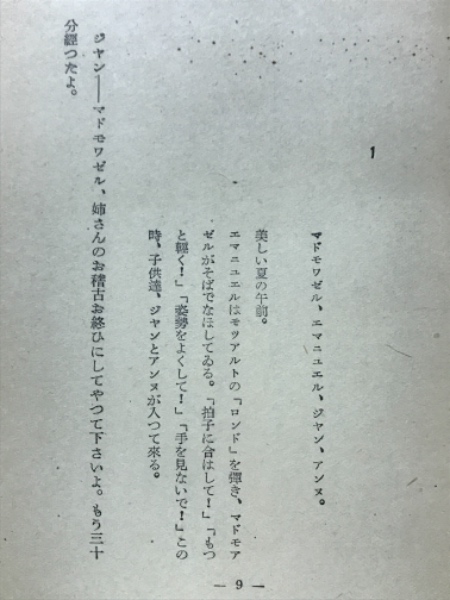 1
マドモワゼル、エマニュエル、ジャン、アンヌ。
美しい夏の午前。
エマニュエルはモツアルトの「ロンド」を彈き、マドモア
ゼルがそばでなほしてゐる。「拍子に合はして！」「もつ
と輕く！」「姿勢をよくして！」「手を見ないで！」この
時、子供達、ジャンとアンヌが入つて來る。
ジヤン――マドモワゼル、姉さんのお稽古お終ひにしてやつて下さいよ。もう三十
分經つたよ。
— 9 —